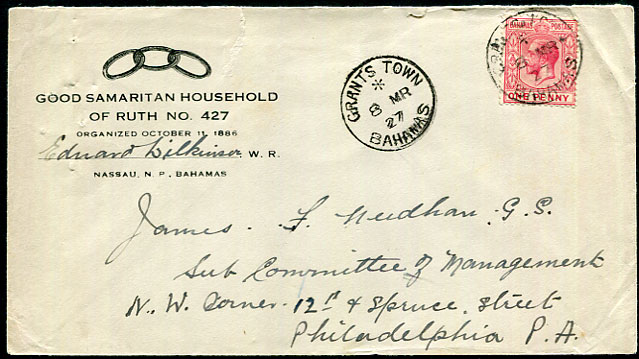 GOOD SAMARITAN HOUSEHOLD
OF RUTH NO. 427
ORGANIZED OCTOBER 11, 1886
Eduard Dilkinson W. R.
NASSAU, N. P., BAHAMAS
GRANTS TOWN
* 8 MR
27
BAHAMAS
BAHAMAS POSTAGE
ONE PENNY
8 MR
BAHAMAS
James. F. Needham. G.S.
Sub Committee of Management
N. W. Corner. 12th & Spruce. Street
Philadelphia P.A.